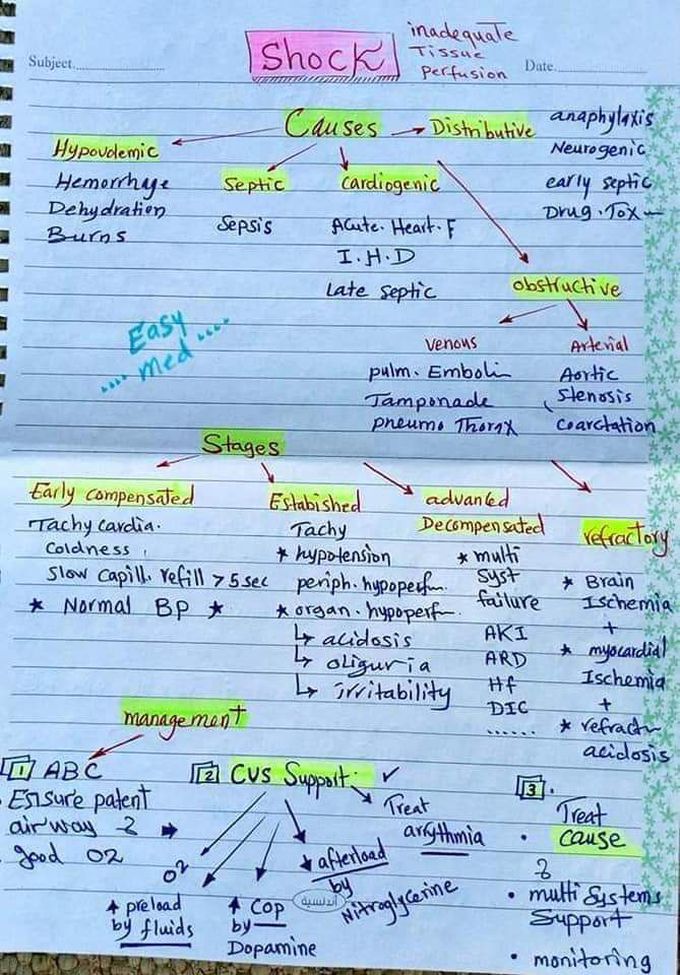 Subject
Shock
inadequate
Tissue
perfusion
Date
Causes
Hypovolemic
Hemorrhage
Dehydration
Burns
Septic
Sepsis
Cardiogenic
Acute. Heart. F
I. H. D
Late septic
Distributive
anaphylaxis
Neurogenic
early septic
Drug. Tox
obstructive
venous
pulm. Emboli
Tamponade
pneumo Thorax
Arterial
Aortic
Stenosis
Coarctation
Easy
med
Stages
Early compensated
Tachy cardia.
Coldness
Slow Capill. refill > 5 sec
* Normal BP *
Estabished
Tachy
* hypotension
periph. hypoperf
* organ. hypoperf
↳ acidosis
↳ oliguria
↳ irritability
advanced
Decompensated
* multi
Syst
failure
AKI
ARD
Hf
DIC
......
refractory
* Brain
Ischemia
+
* myocardial
Ischemia
+
* refract
acidosis
management
1 ABC
Ensure patent
airway &
good O2
2 CVS Support. ✓
O2
↑ preload
by fluids
↑ COP
by
Dopamine
↓ afterload
by
Nitroglycerine
Treat
arrythmia
أندلسية
3.
Treat
• cause
&
• multi Systems
Support
• monitoring